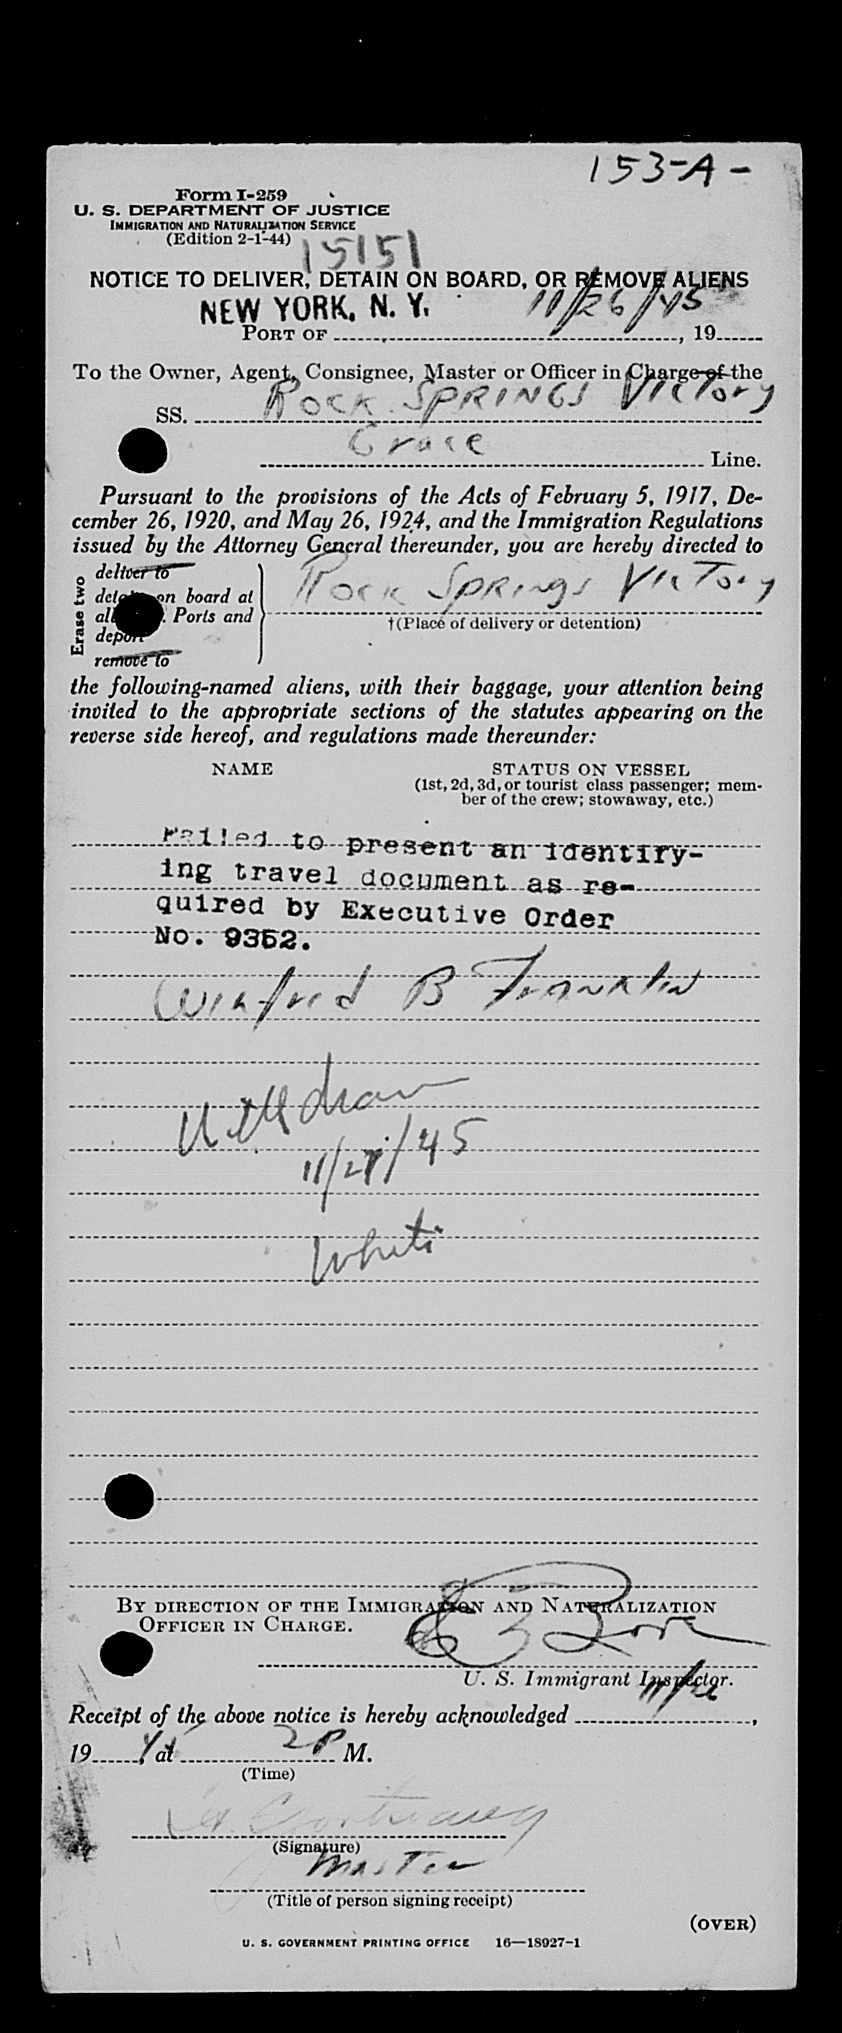 153-A-
Form I-259
U. S. DEPARTMENT OF JUSTICE
IMMIGRATION AND NATURALIZATION SERVICE
(Edition 2-1-44)
15151
NOTICE TO DELIVER, DETAIN ON BOARD, OR REMOVE ALIENS
NEW YORK, N. Y. 11/26/45
PORT OF , 19
To the Owner, Agent, Consignee, Master or Officer in Charge of the
SS. ROCK SPRINGS VICTORY
Grace Line.
Pursuant to the provisions of the Acts of February 5, 1917, De-
cember 26, 1920, and May 26, 1924, and the Immigration Regulations
issued by the Attorney General thereunder, you are hereby directed to
Erase two
deliver to
detain on board at
all Ports and
deport
remove to
ROCK SPRINGS VICTORY
†(Place of delivery or detention)
the following-named aliens, with their baggage, your attention being
invited to the appropriate sections of the statutes appearing on the
reverse side hereof, and regulations made thereunder:
NAME STATUS ON VESSEL
(1st, 2d, 3d, or tourist class passenger; mem-
ber of the crew; stowaway, etc.)
Failed to present an identify-
ing travel document as re-
quired by Executive Order
No. 9352.
Winfred B Franklin
Withdrawn
11/27/45
White
BY DIRECTION OF THE IMMIGRATION AND NATURALIZATION
OFFICER IN CHARGE.
U. S. Immigrant Inspector.
Receipt of the above notice is hereby acknowledged 11/26,
1945 at 2 P M.
(Time)
(Signature)
Master
(Title of person signing receipt)
(OVER)
U. S. GOVERNMENT PRINTING OFFICE 16—18927-1